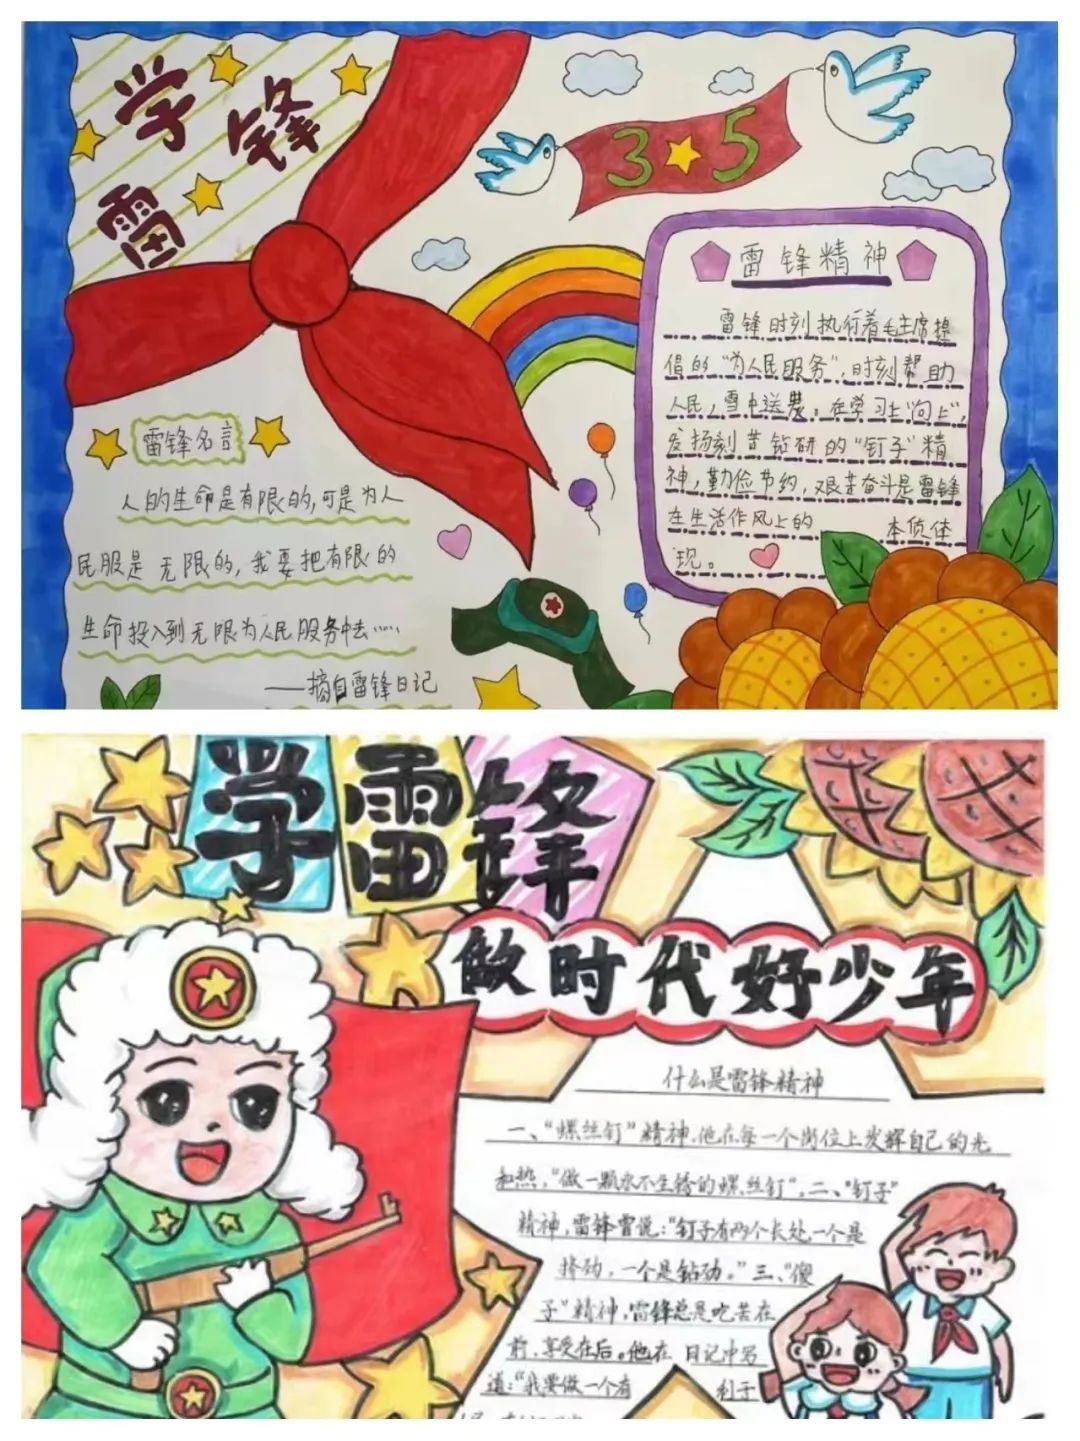 学
锋
雷
3★5
雷锋精神
雷锋时刻执行着毛主席提
倡的“为人民服务”,时刻帮助
人民,雪中送
。在学习上“向上”,
发扬刻苦钻研的“钉子”精
神,勤俭节约,艰苦奋斗是雷锋
在生活作风上的 本侦体
现。
雷锋名言
人的生命是有限的,可是为人
民服是无限的,我要把有限的
生命投入到无限为人民服务中去……
——摘自雷锋日记
学雷锋
做时代好少年
什么是雷锋精神
一、“螺丝钉”精神,他在每一个岗位上发挥自己的光
和热,“做一颗永不生锈的螺丝钉”,二、“钉子”
精神,雷锋曾说:“钉子有两个长处一个是
挤劲,一个是钻劲。”三、“傻
子”精神,雷锋总是吃苦在
前,享受在后。他在 日记中写
道:“我要做一个有 利于